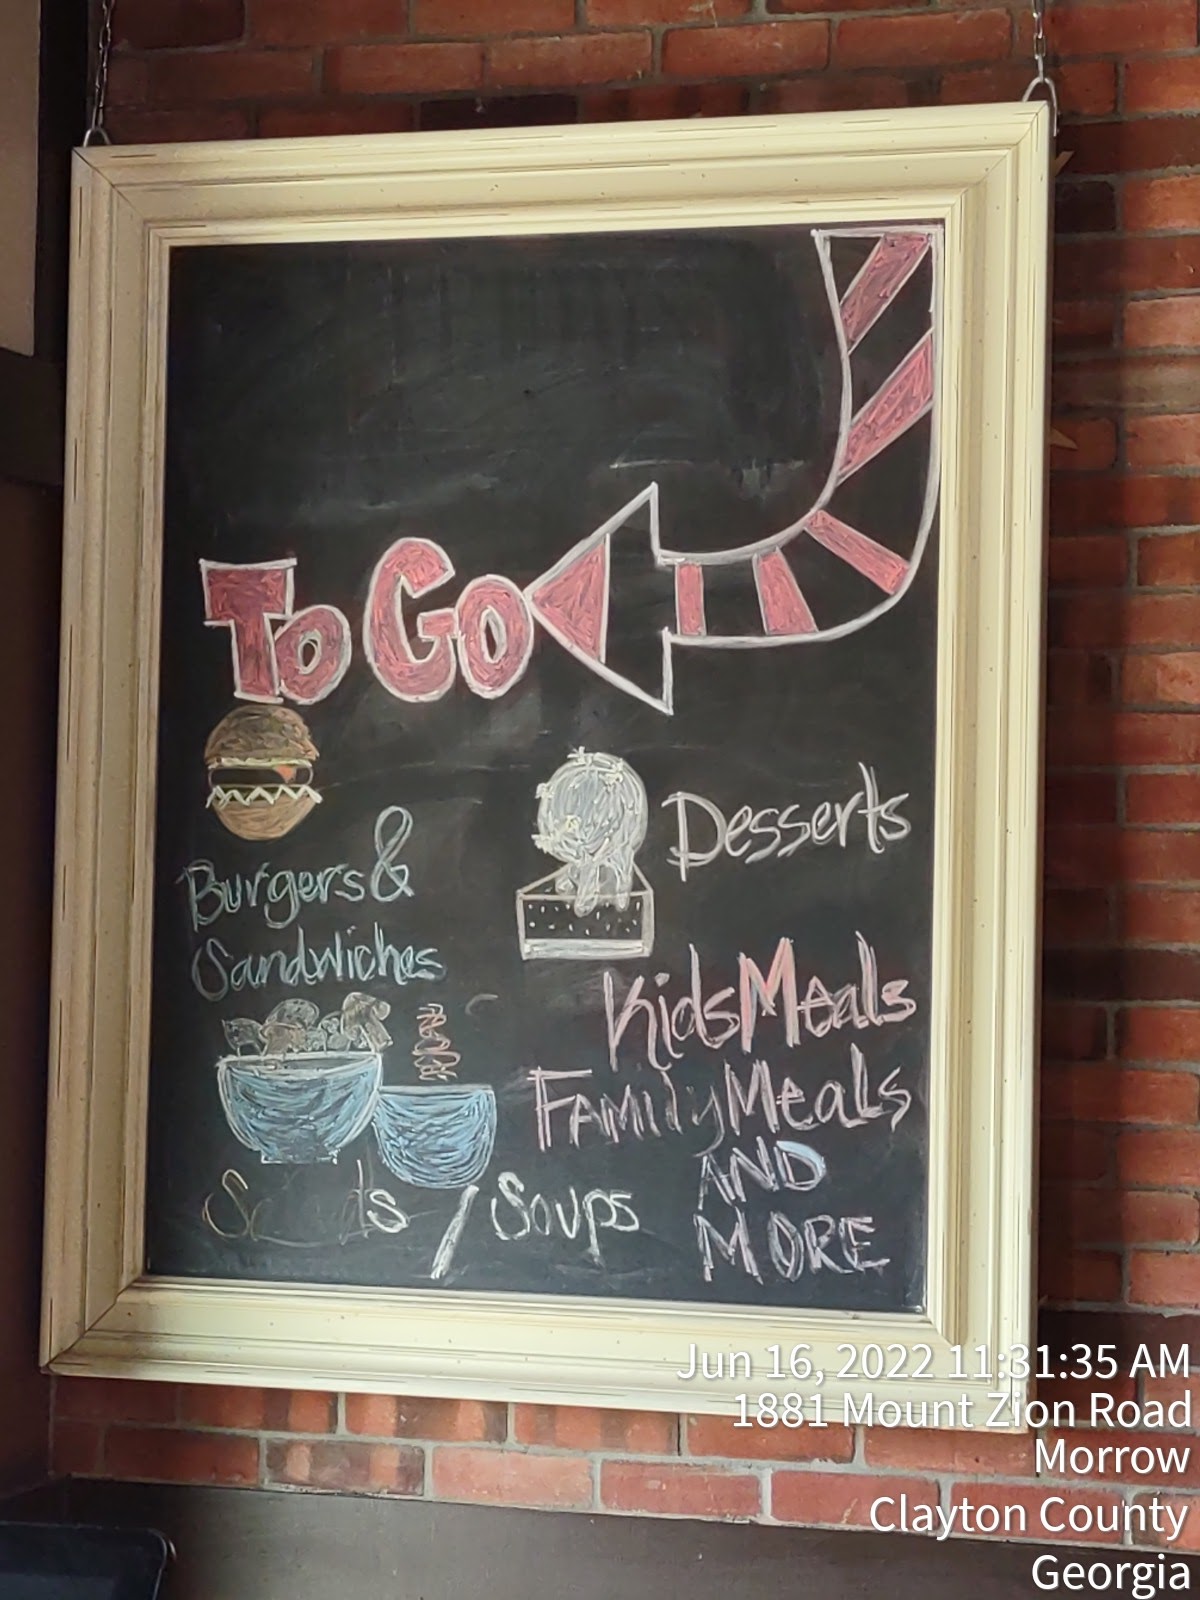 To Go
Burgers &
Sandwiches
Desserts
Kids Meals
Family Meals
AND
MORE
Salads / Soups
Jun 16, 2022 11:31:35 AM
1881 Mount Zion Road
Morrow
Clayton County
Georgia